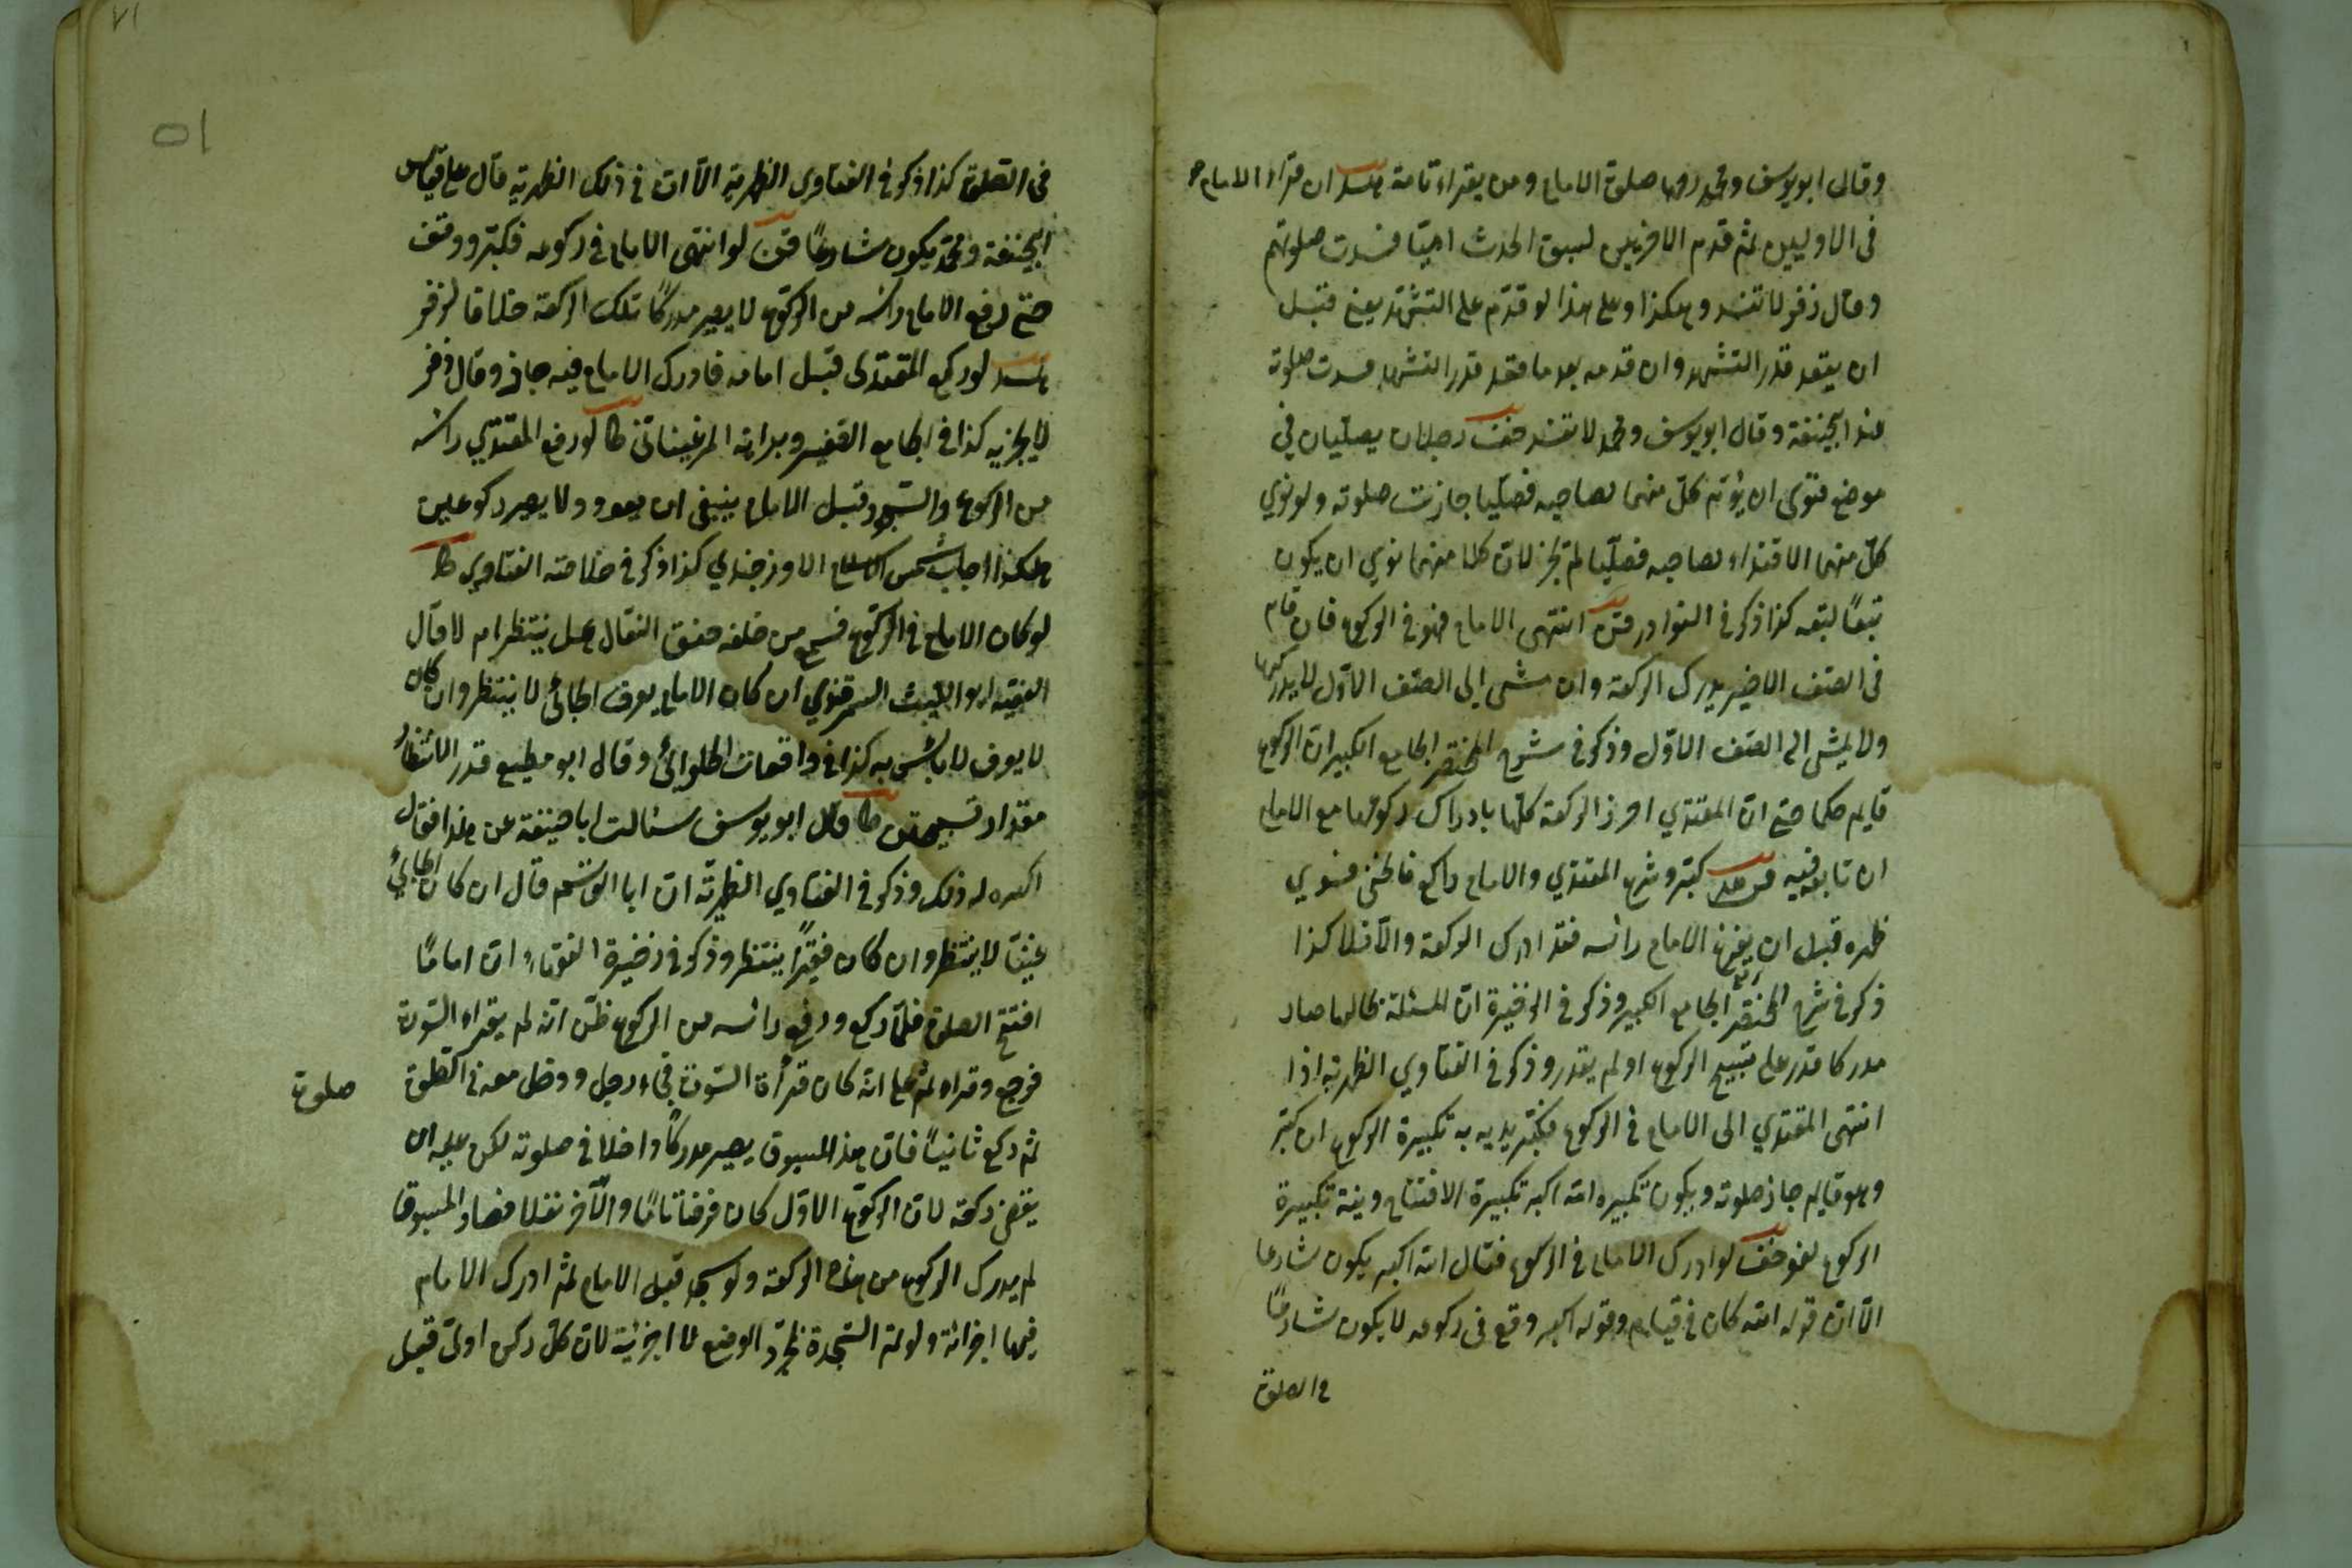 وقال ابو يوسف ومحمد رحمهما صلوة الامام ومن يقراء تامة هد ان قراء الامام
فى الاوليين ثم قدم الاخريين لسبق الحدث اميّا فسدت صلوتهم
وقال زفر لا تفسد وهكذا وعلى هذا لو قدّم على التشهّد يعنى قبل
ان يقعد قدر التشهد وان قدمه بعد ما قعد قدر التشهد فسدت صلوته
عند ابيحنيفة وقال ابو يوسف ومحمد لا تفسد خف رجلان يصلّيان فى
موضع فنوى ان يؤتم كلّ منهما لصاحبه فصلّيا جازت صلوته ولو نوي
كلّ منهما الاقتداء لصاحبه فصلّيا لم تجز لانّ كلا منهما نوي ان يكون
تبعًا لتبعه كذا ذكر فى النوادر قن انتهى الامام فهو فى الركوع فان قام
فى الصّف الاخير يدرك الركعة وان مشى الى الصّف الاوّل لا يدركها
ولا يمشى الى الصّف الاوّل وذكر فى شرح المختصر الجامع الكبير انّ الركوع
قايم حكما حتى انّ المقتدي احرز الركعة كلّها بادراك ركوعها مع الامام
ان تابعه فيه كبّر وشرع المقتدي والامام راكع فانحنى فسوي
ظهره قبل ان يرفع الامام رأسه فقد ادرك الركعة والّا فلا كذا
ذكر فى شرح المختصر الجامع الكبير وذكر فى الذخيرة انّ المسئلة بحالها صار
مدركا قدر على تسبيح الركوع او لم يقدر وذكر فى الفتاوي الظهرية اذا
انتهى المقتدي الى الامام فى الركوع فكبّر يريد به تكبيرة الركوع ان كبّر
وهو قايم جاز صلوته ويكون تكبيره الله اكبر تكبيرة الافتتاح ونية تكبيرة
الركوع لغو خف لو ادرك الامام فى الركوع فقال الله اكبر يكون شارعا
الّا انّ قوله الله كان فى قيام وقوله اكبر وقع فى ركوعه لا يكون شارعًا
فى الصلوة
فى الصّلوة كذا ذكر فى الفتاوى الظهرية الّا انّ فى ذلك الظهرية قال على قياس
ابيحنيفة ومحمد يكون شارعًا قن لو انتهى الامام فى ركوعه فكبّر ووقف
حتى رفع الامام رأسه من الركوع لا يصير مدركًا تلك الركعة خلافا لزفر
هد لو ركع المقتدى قبل امامه فادرك الامام فيه جاز وقال زفر
لا يجزيه كذا فى الجامع الصّغير وبداية المرغينانى طا لو رفع المقتدي رأسه
من الركوع والسّجود قبل الامام ينبغى ان يعود ولا يصير ركوعين
هكذا اجاب شمس الاسلام الاوزجندي كذا ذكر فى خلاصة الفتاوي طا
لو كان الامام فى الركوع فسمع من خلفه خفق النعال هل ينتظر ام لا قال
الفقيه ابو الليث السمرقندي ان كان الامام يعرف الجائ لا ينتظر وان كان
لا يعرف لا بأس به كذا فى واقعات الحلوائ وقال ابو مطيع قدر الانتظار
مقدار تسبيحتين طا قال ابو يوسف سئالت ابا حنيفة عن هذا فقال
اكره له ذلك وذكر فى الفتاوي الظهريّة انّ ابا القاسم قال ان كان الجائ
غنيّا لا ينتظر وان كان فقيرًا ينتظر وذكر فى ذخيرة الفقهاء انّ امامًا
افتتح الصلوة فلمّا ركع ورفع رأسه من الركوع ظنّ انّه لم يقراء السّورة
فرجع وقراء ثم علم انّه كان قرأة السّورة فجاء رجل ودخل معه فى الصّلوة
صلوة
ثم ركع ثانيًا فانّ هذا المسبوق يصير مدركًا داخلا فى صلوته لكن عليه ان
يقضى ركعة لانّ الركوع الاوّل كان فرضا تامّا والآخر نفلا فصار المسبوق
لم يدرك الركوع من هذه الركعة ولو سجد قبل الامام ثم ادرك الامام
فيها اجزائه ولو تمّ السّجدة بمجرّد الوضع لما اجزئه لانّ كلّ ركن اولى قبل